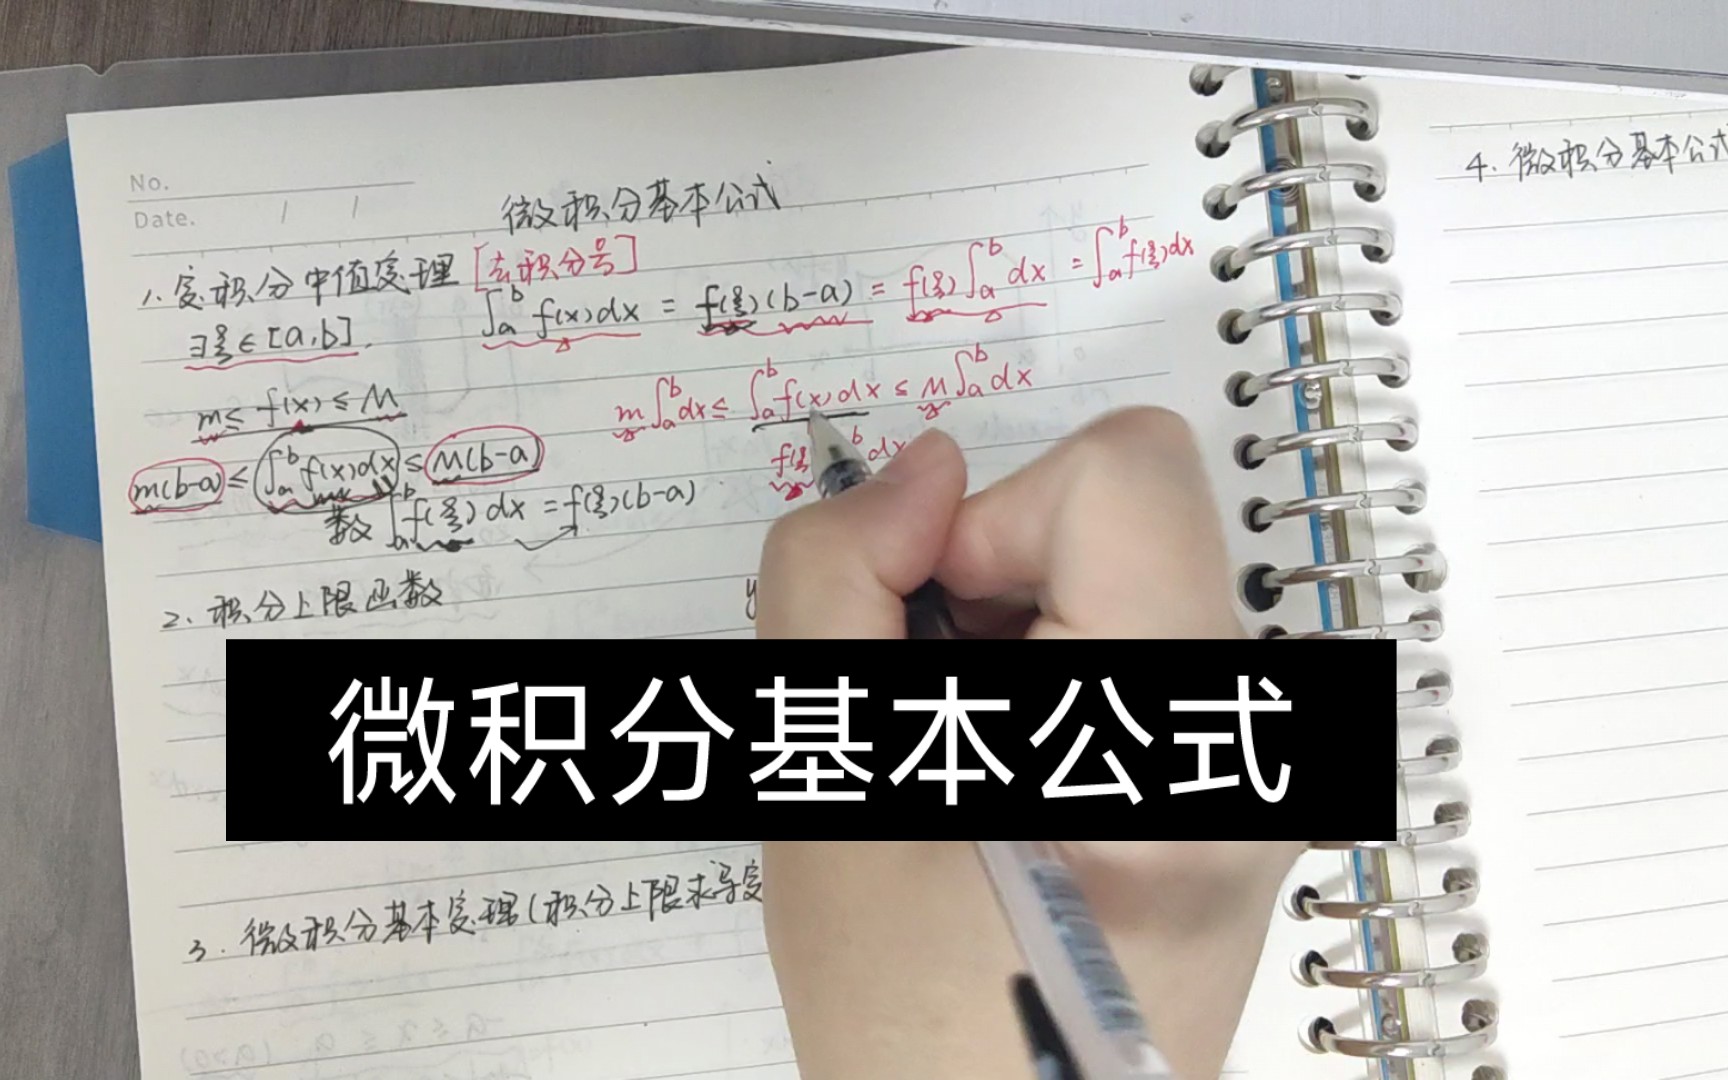 No.
Date. / /
微积分基本公式
1. 定积分中值定理 [去积分号]
∃ξ∈[a,b]. ∫ₐᵇ f(x)dx = f(ξ)(b-a) = f(ξ)∫ₐᵇ dx = ∫ₐᵇ f(ξ)dx
m≤ f(x) ≤ M
m∫ₐᵇ dx ≤ ∫ₐᵇ f(x)dx ≤ M∫ₐᵇ dx
m(b-a) ≤ ∫ₐᵇ f(x)dx ≤ M(b-a)
b dx
数 ∫ₐᵇ f(ξ)dx = f(ξ)(b-a)
2. 积分上限函数
y
微积分基本公式
3. 微积分基本定理(积分上限求导定
4. 微积分基本公式